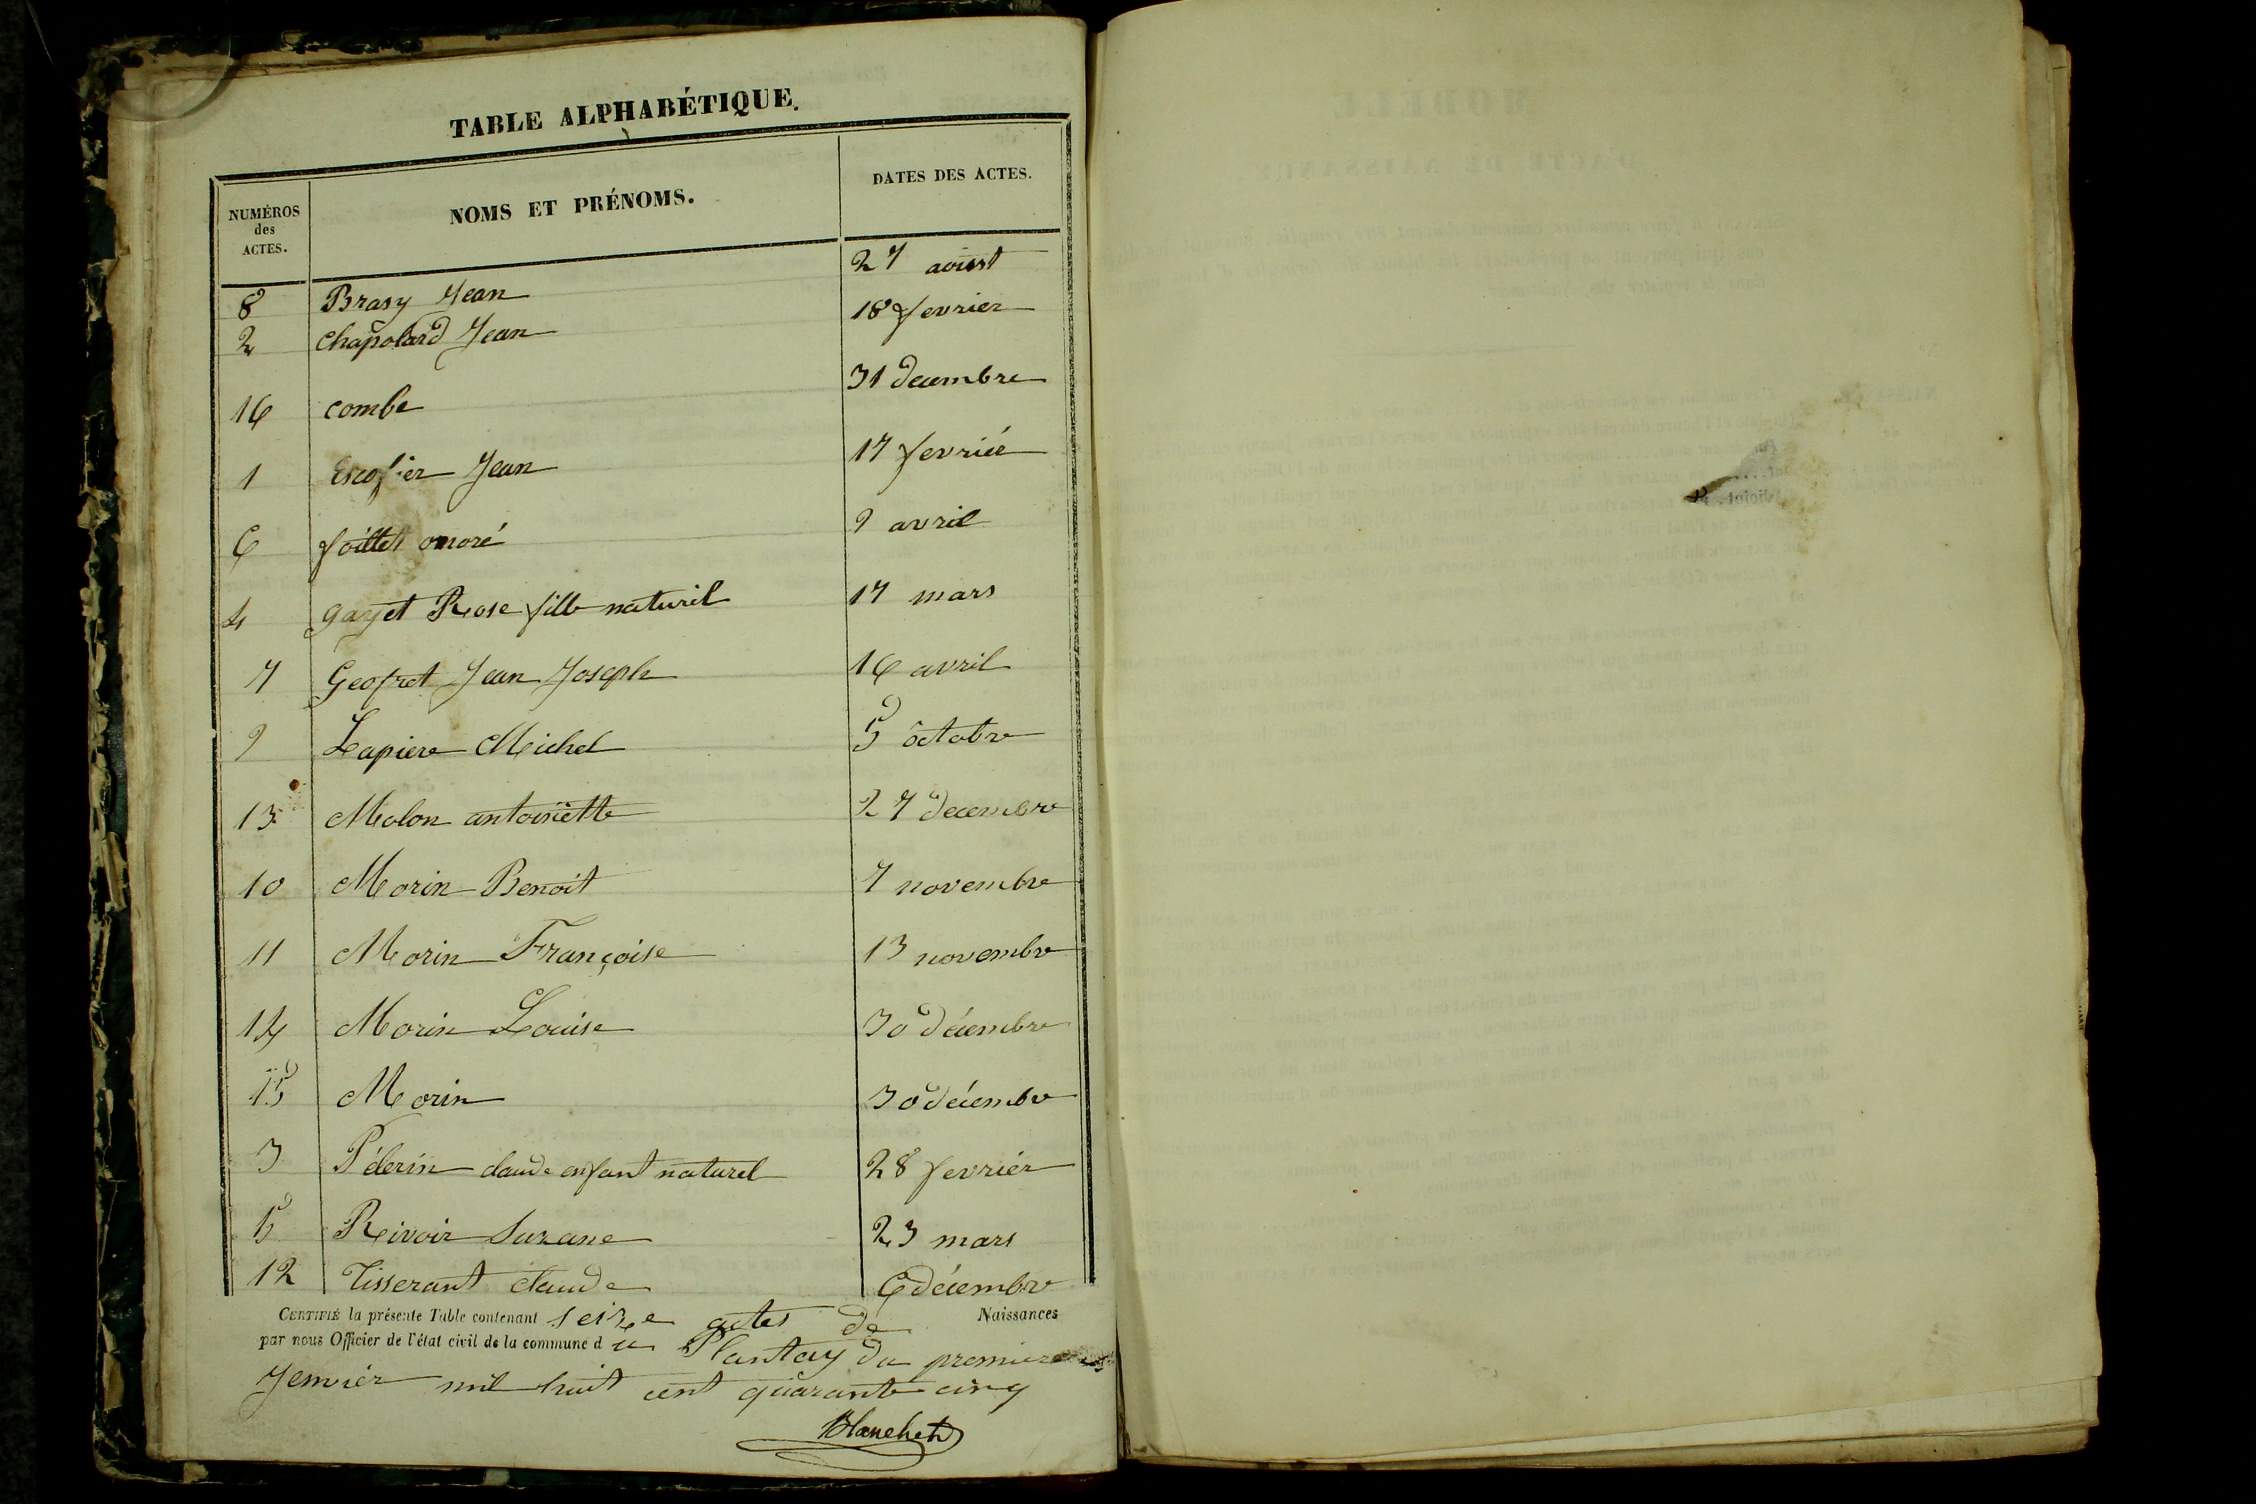 TABLE ALPHABÉTIQUE.
NUMÉROS des ACTES. NOMS ET PRÉNOMS. DATES DES ACTES.
8 Brasy Jean 27 aoust
2 chapolard Jean 18 fevrier
16 combe 31 decembre
1 Escofier Jean 17 fevrié
6 foillet onoré 9 avril
4 gayet Rose fille naturel 17 mars
7 Geofret Jean Joseph 16 avril
9 Lapiere Michel 5 octobre
13 Molon antoinette 27 decembre
10 Morin Benoit 7 novembre
11 Morin Françoise 13 novembre
14 Morin Louise 30 décembre
15 Morin 30 décembre
3 Pélerin claude enfant naturel 28 fevriér
5 Reivoir Suzane 23 mars
12 Tisserant claude 6 décembre
CERTIFIÉ la présente Table contenant seize actes de Naissances
par nous Officier de l'état civil de la commune d u Plantay du premiere
Jenvier mil huit cent quarante cinq
Blanchet